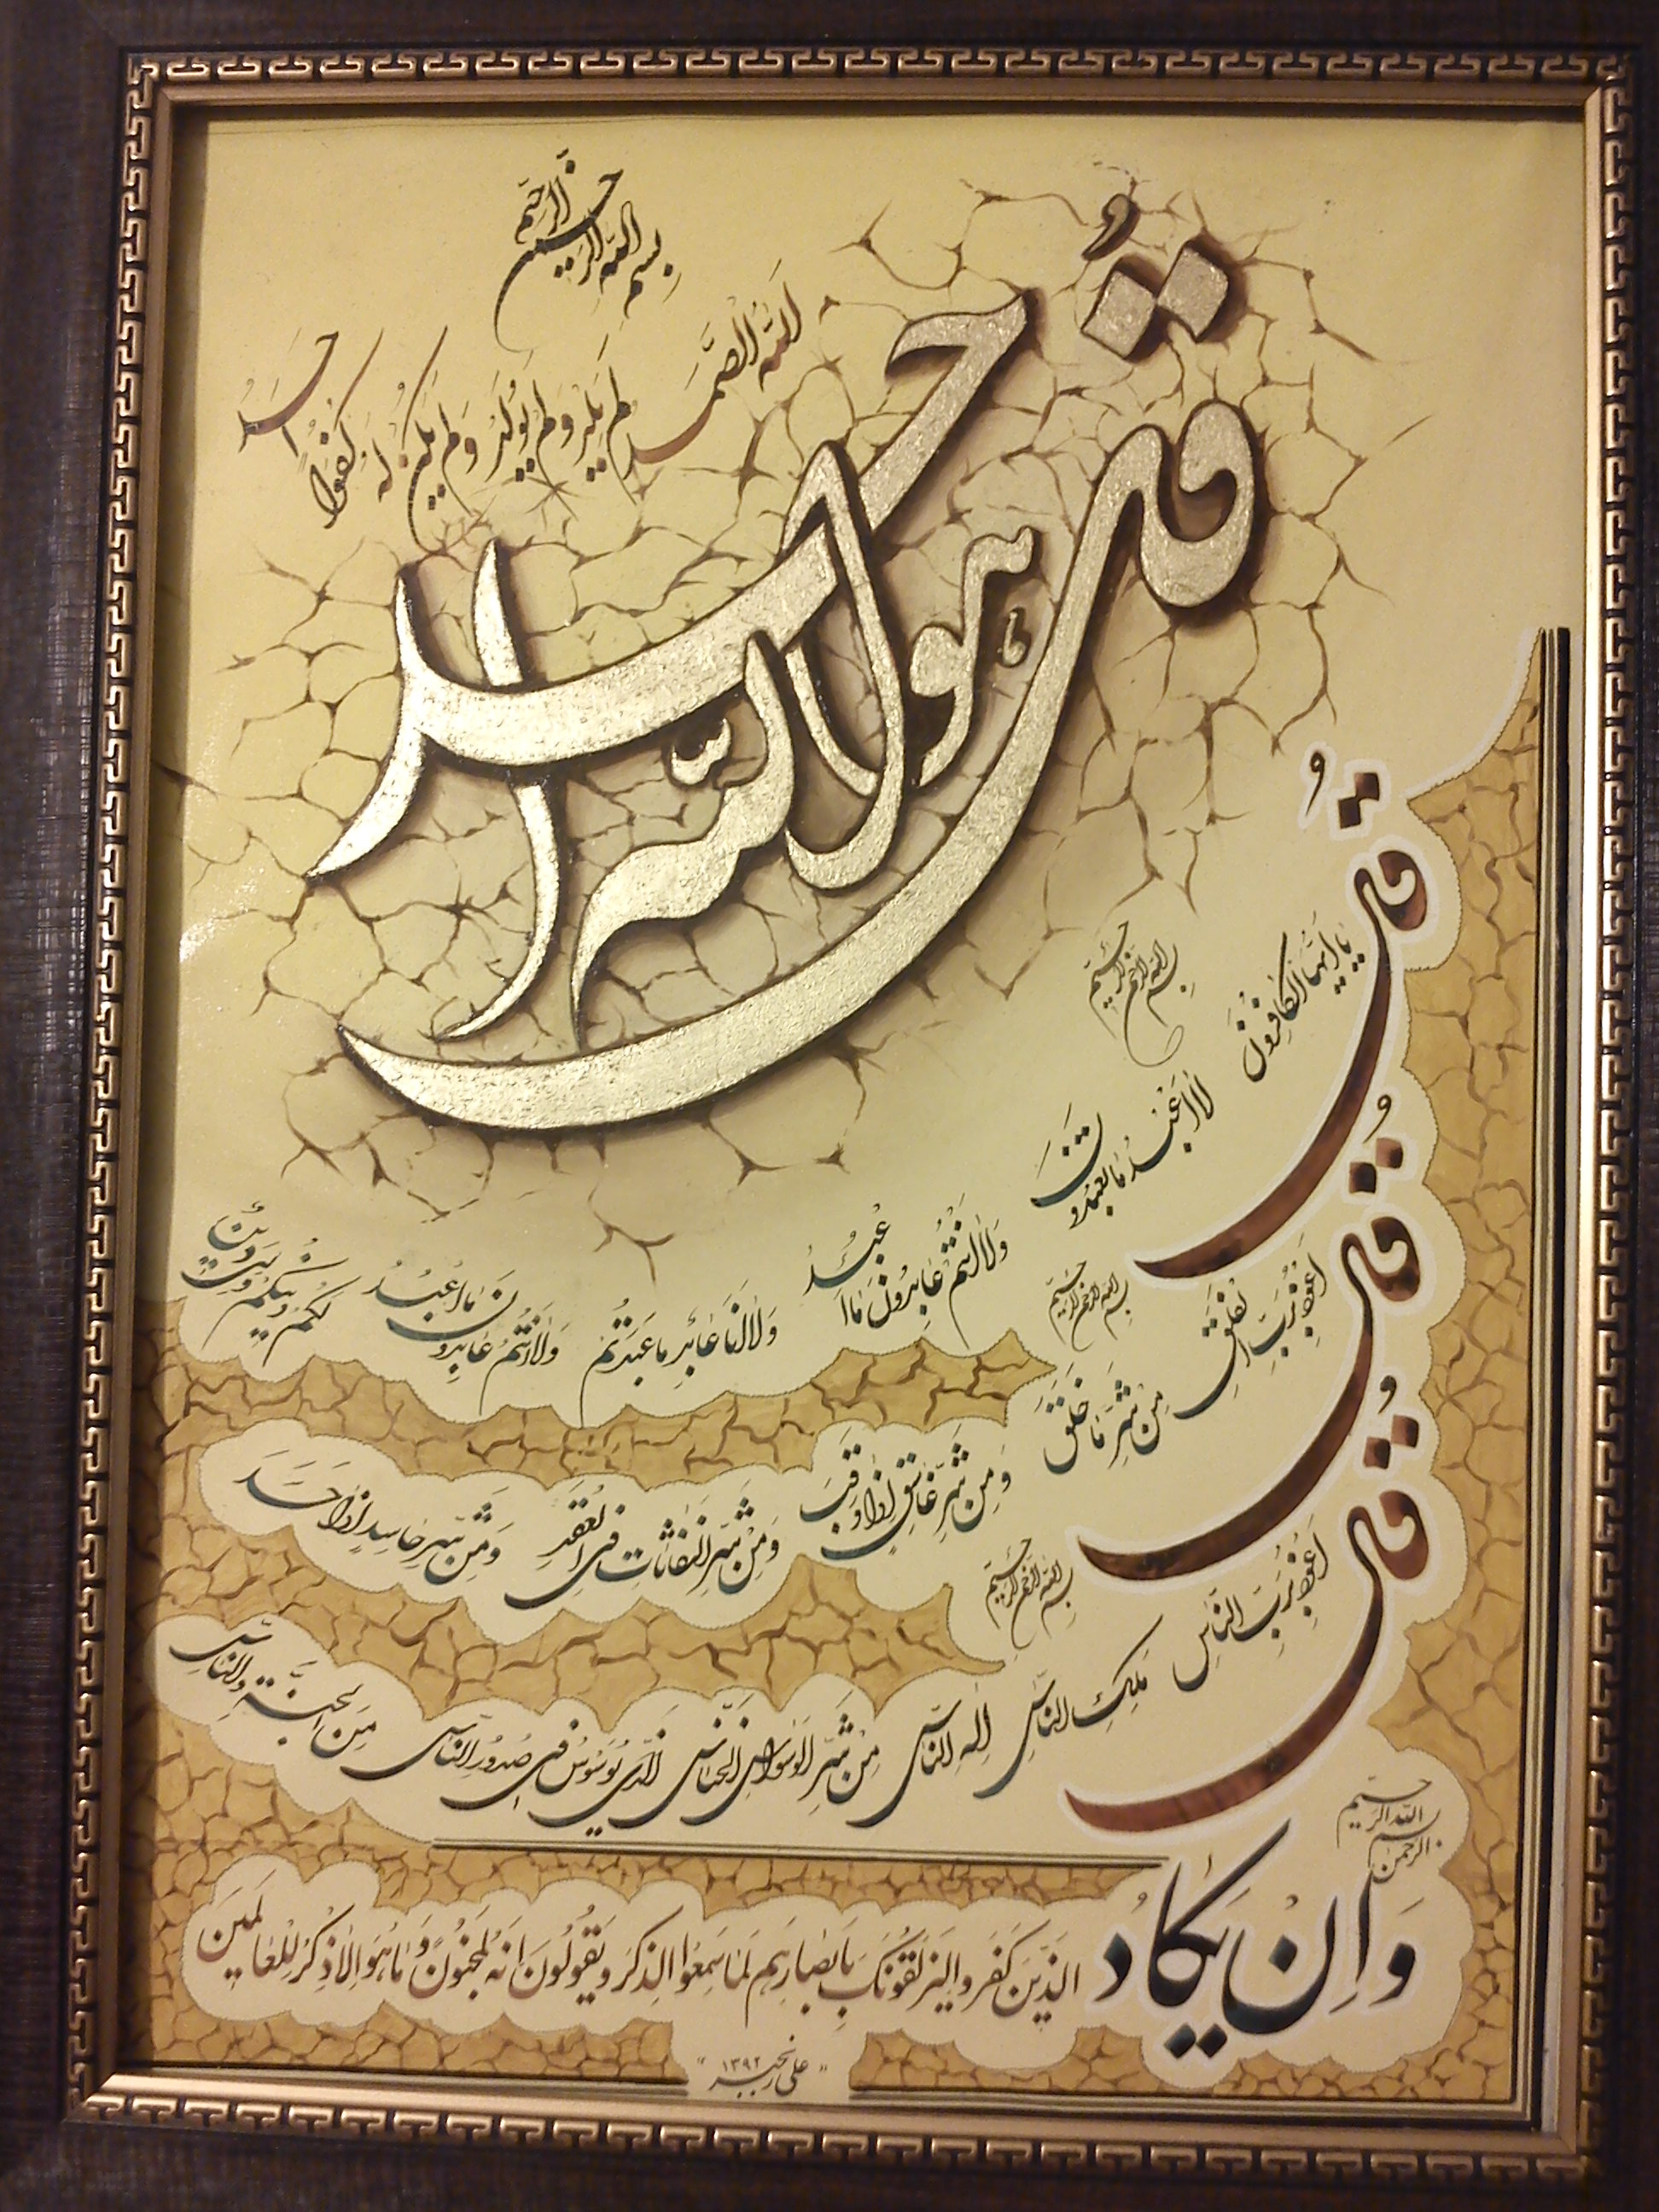 بِسْمِ اللهِ الرَّحْمٰنِ الرَّحیمِ
قُل هو الله احد
اَللهُ الصَّمَد لَم یَلِد وَلَم یُولَد وَلَم یَکُن لَه کُفُوًا اَحَد
بسم الله الرحمن الرحیم
قُل یا اَیُّهَا الکافِرُونَ
لا اَعبُدُ ما تَعبُدُونَ
وَلا اَنتُم عابِدُونَ ما اَعبُدُ
وَلا اَنَا عابِدٌ ما عَبَدتُم
وَلا اَنتُم عابِدُونَ ما اَعبُدُ
لَکُم دینُکُم وَلِیَ دینِ
بسم الله الرحمن الرحیم
قُل اَعُوذُ بِرَبِّ الفَلَقِ
مِن شَرِّ ما خَلَقَ
وَمِن شَرِّ غاسِقٍ اِذا وَقَبَ
وَمِن شَرِّ النَّفّاثاتِ فِی العُقَدِ
وَمِن شَرِّ حاسِدٍ اِذا حَسَدَ
بسم الله الرحمن الرحیم
قُل اَعُوذُ بِرَبِّ النّاسِ
مَلِکِ النّاسِ
اِلهِ النّاسِ
مِن شَرِّ الوَسواسِ الخَنّاسِ
الَّذی یُوَسوِسُ فی صُدُورِ النّاسِ
مِنَ الجِنَّةِ وَالنّاسِ
بسم الله الرحمن الرحیم
وَاِنْ یَکادُ الَّذینَ کَفَروا لَیُزلِقُونَکَ بِاَبصارِهِم لَمّا سَمِعُوا الذِکرَ وَیَقُولُونَ اِنَّهُ لَمَجنُونٌ وَما هُوَ اِلّا ذِکرٌ لِلعالَمینَ
"علی رنجبر ۱۳۹۲"